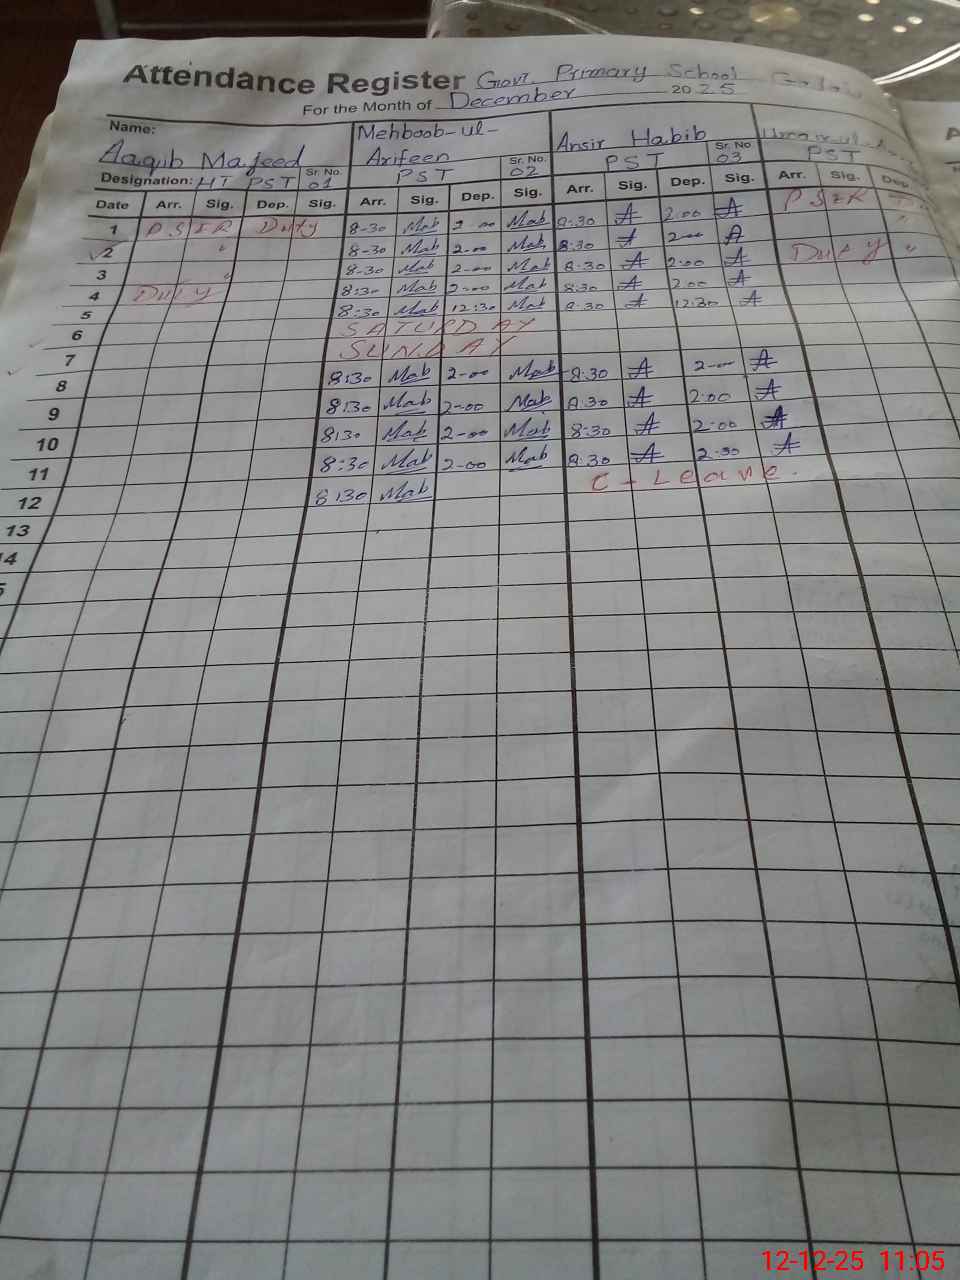 Attendance Register Govt. Primary School
For the Month of December 2025
Name: Aaqib Majeed Mehboob-ul-Arifeen Ansir Habib
Designation: HT PST Sr. No. 01 PST Sr. No. 02 PST Sr. No. 03 PST
Date Arr. Sig. Dep. Sig. Arr. Sig. Dep. Sig. Arr. Sig. Dep. Sig. Arr. Sig. Dep.
1 PSER Duty 8-30 Mab 2-00 Mab 8:30 A 2:00 A PSER
2 " 8-30 Mab 2-00 Mab 8:30 A 2-00 A "
3 " 8-30 Mab 2-00 Mab 8:30 A 2:00 A Duty "
4 Duty 8:30 Mab 2-00 Mab 8:30 A 2:00 A
5 8:30 Mab 12:30 Mab 8:30 A 12:30 A
6 SATURDAY
7 SUNDAY
8 8:30 Mab 2-00 Mab 8:30 A 2-00 A
9 8:30 Mab 2-00 Mab 8:30 A 2:00 A
10 8:30 Mab 2-00 Mab 8:30 A 2:00 A
11 8:30 Mab 2-00 Mab 8:30 A 2:00 A
12 8:30 Mab C-Leave.
13
14
5
12-12-25 11:05